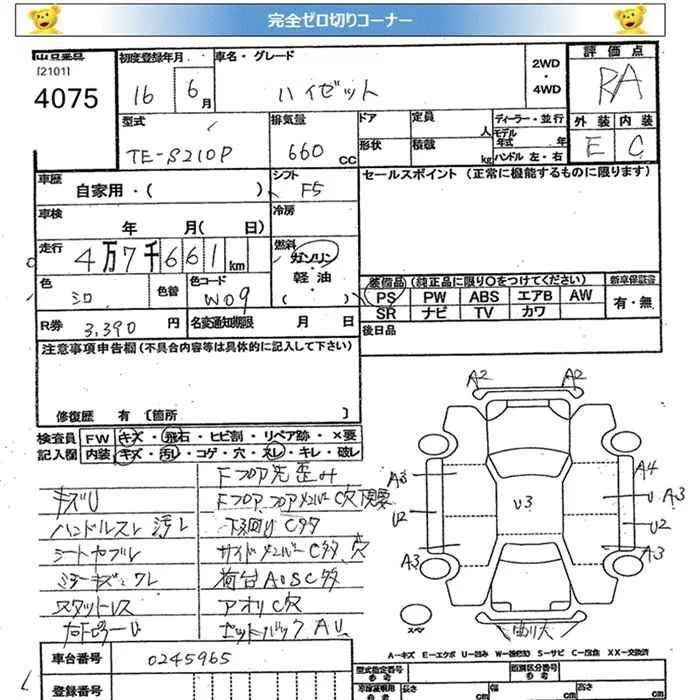 完全ゼロ切りコーナー
[2101]
4075
初度登録年月 16 6月
車名・グレード ハイゼット
2WD・4WD
評価点 RA
外装 内装
E C
型式 TE-S210P
排気量 660 CC
ドア
形状
定員 人
積載 kg
ディーラー・並行
モデル年式 年
ハンドル 左・右
車歴 自家用・( )
シフト F5
セールスポイント (正常に機能するものに限ります)
車検 年 月( 日)
冷房
走行 4万7千661km
燃料 ガソリン・軽油・( )
色 シロ 色替
色コード W09
装備品 (純正品に限り○をつけてください)
新車保証書
PS PW ABS エアB AW 有・無
SR ナビ TV カワ
R券 3,390 円
名変通知期限 月 日
後日品
注意事項申告欄 (不具合内容等は具体的に記入して下さい)
修復歴 有 〔箇所 〕
検査員 FW キズ・飛石・ヒビ割・リペア跡・×要
記入欄 内装 キズ・汚レ・コゲ・穴・スレ・キレ・破レ
キズU
ハンドルスレ 汚レ
シートヤブレ
ミラーキズ・ワレ
スタットレス
Fフロア先歪み
下回りC多
サイドメンバーC多 穴
荷台AUSC多
アオリC穴
A2 A2
A3 A4
U2 U3 U A3
U2
A3 A3
スペア
A-キズ E-エクボ U-凹み W-補修跡 S-サビ C-腐食 XX-交換済
車台番号 0245965
登録番号
型式指定番号 参考
類別区分番号 参考
長さ cm 幅 cm 高さ cm